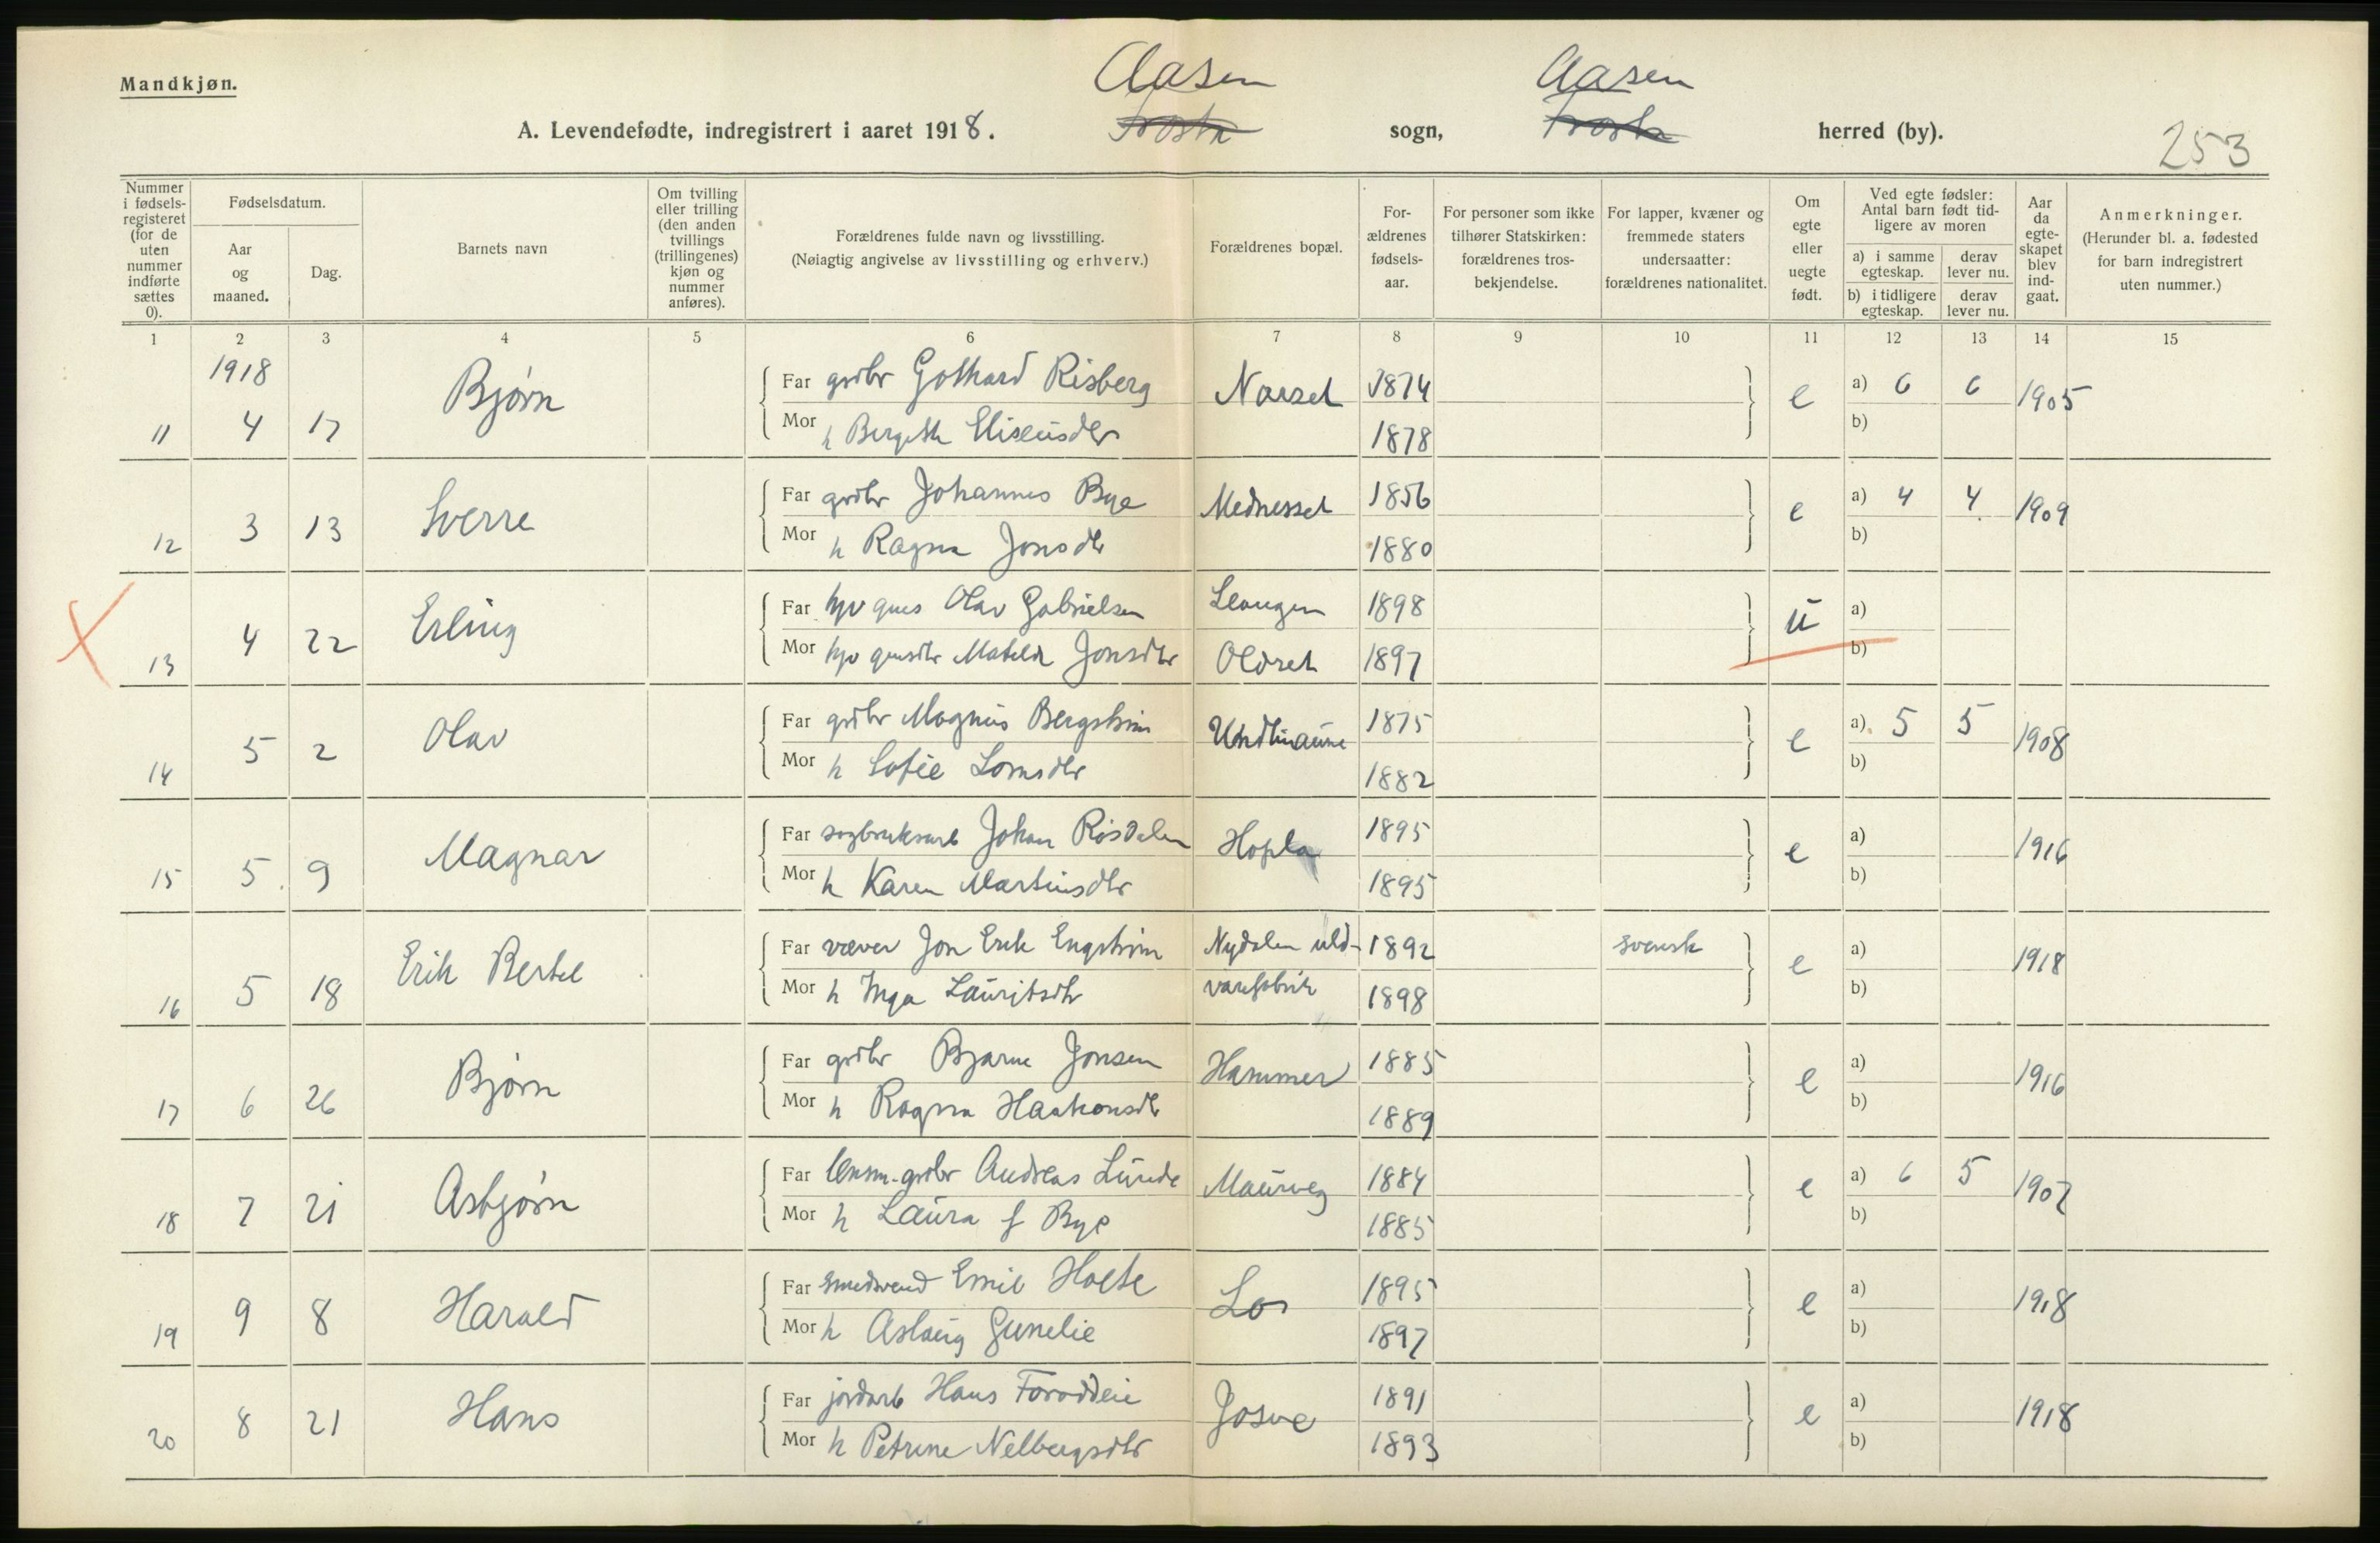 Mandkjøn.
Aasen Aasen
A. Levendefødte, indregistrert i aaret 1918. Frosta sogn, Frosta herred (by).
253
Nummer i fødsels-registeret (for de uten nummer indførte sættes 0).
Fødselsdatum.
Aar og maaned.
Dag.
Barnets navn
Om tvilling eller trilling (den anden tvillings (trillingenes) kjøn og nummer anføres).
Forældrenes fulde navn og livsstilling.
(Nøiagtig angivelse av livsstilling og erhverv.)
Forældrenes bopæl.
For-ældrenes fødsels-aar.
For personer som ikke tilhører Statskirken: forældrenes tros-bekjendelse.
For lapper, kvæner og fremmede staters undersaatter: forældrenes nationalitet.
Om egte eller uegte født.
Ved egte fødsler: Antal barn født tid-ligere av moren
a) i samme egteskap. derav lever nu.
b) i tidligere egteskap. derav lever nu.
Aar da egte-skapet blev ind-gaat.
Anmerkninger.
(Herunder bl. a. fødested for barn indregistrert uten nummer.)
1 2 3 4 5 6 7 8 9 10 11 12 13 14 15
1918
11 4 17 Bjørn Far grdbr Gothard Risberg Norset 1874 e a) 6 6 1905
Mor h Bergitte Eliseusdtr 1878 b)
12 3 13 Sverre Far grdbr Johannes Bye Mednesset 1856 e a) 4 4 1909
Mor h Ragna Jonsdtr 1880 b)
13 4 22 Erling Far Olav Gabrielsen 1898 u a)
Mor Jonsdtr Oldret 1897 b)
14 5 2 Olav Far grdbr Magnus Bergström 1875 e a) 5 5 1908
Mor h Sofie 1882 b)
15 5 9 Magnar Far sagbruksarb Johan Røsdalen Hopla 1895 e a) 1916
Mor h Karen Martinsdtr 1895 b)
16 5 18 Erik Bertel Far væver Jon Erik Engström Nydalen uld- 1892 svensk e a) 1918
Mor h Inga Lauritsdtr varefabrik 1898 b)
17 6 26 Bjørn Far grdbr Bjarne Jonsen Hammer 1885 e a) 1916
Mor h Ragna Haakonsdtr 1889 b)
18 7 21 Asbjørn Far lensm.grdbr Andreas Lunde 1884 e a) 6 5 1907
Mor h Laura f Bye 1885 b)
19 9 8 Harald Far smedsvend Emil Holte Lo 1895 e a) 1918
Mor h Aslaug Gunelie 1897 b)
20 8 21 Hans Far jordarb Hans 1891 e a) 1918
Mor h Petrine 1893 b)